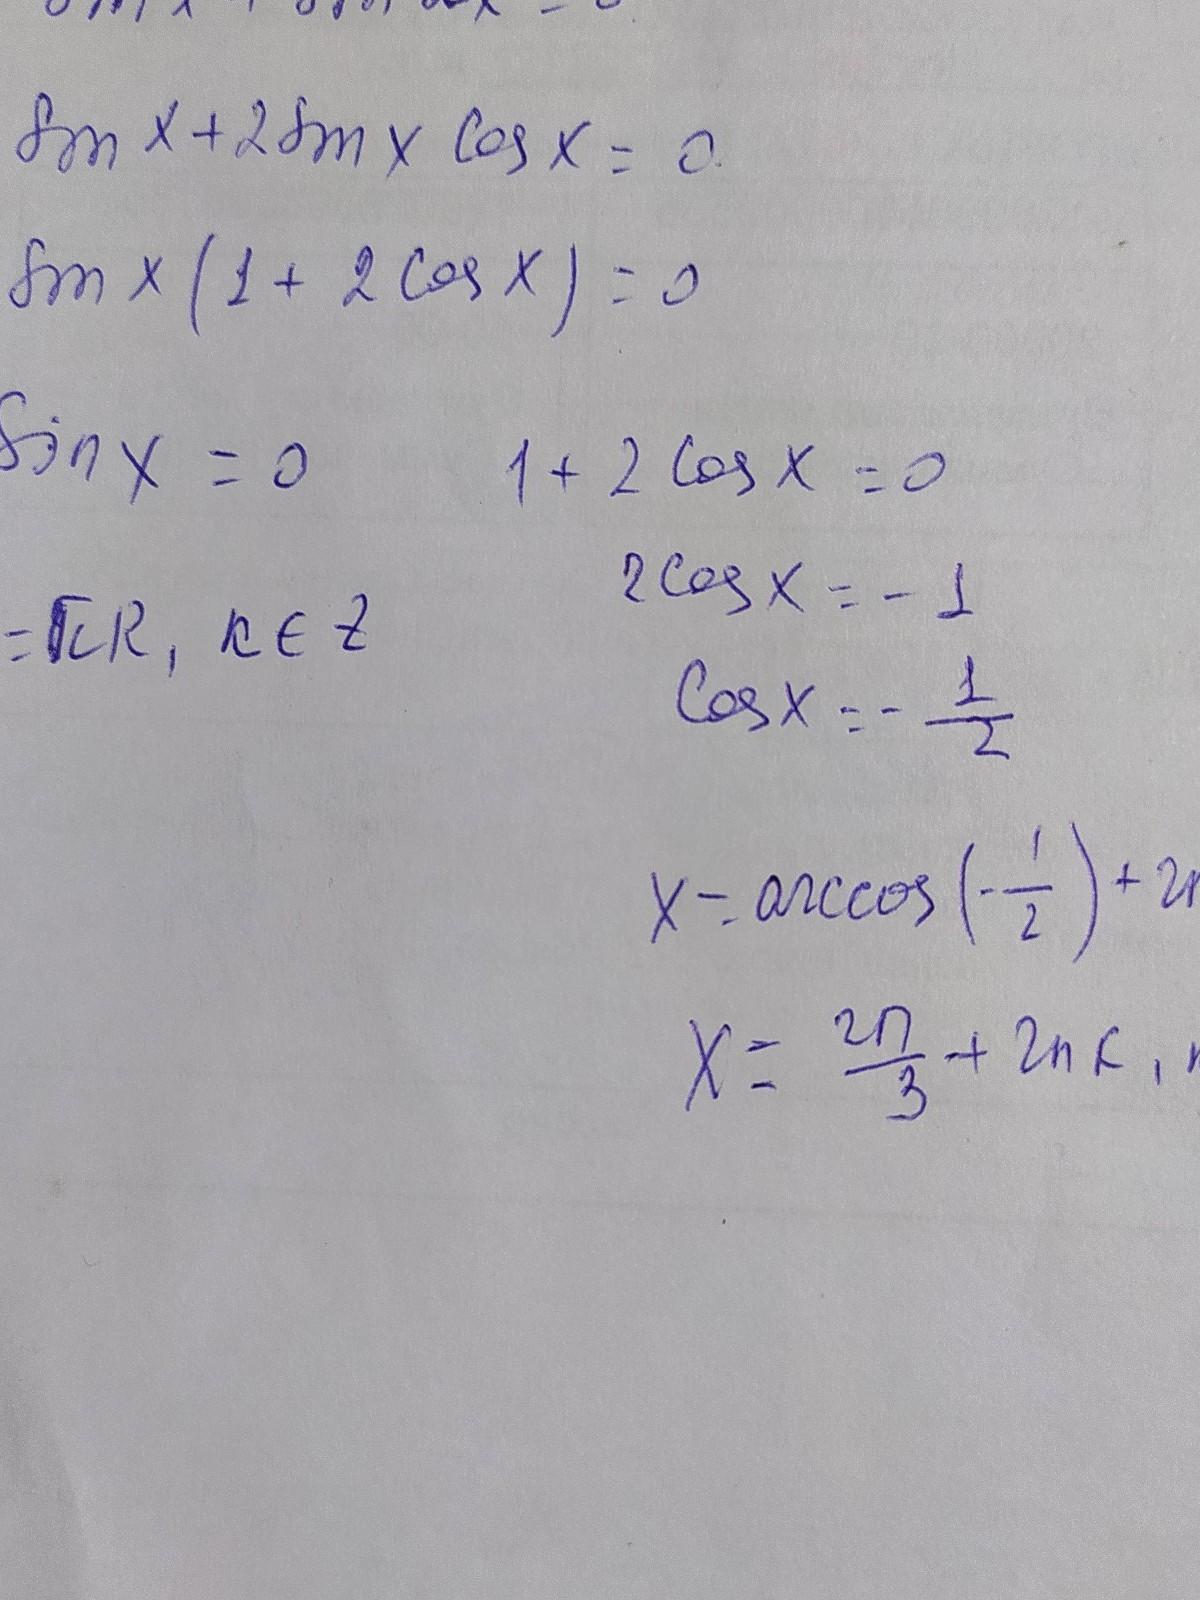 sin x + 2 sin x cos x = 0
sin x (1 + 2 cos x) = 0
sin x = 0
1 + 2 cos x = 0
2 cos x = - 1
= πk, k ∈ Z
cos x = - 1/2
x = arccos (- 1/2) + 2π
x = 2π/3 + 2πk,